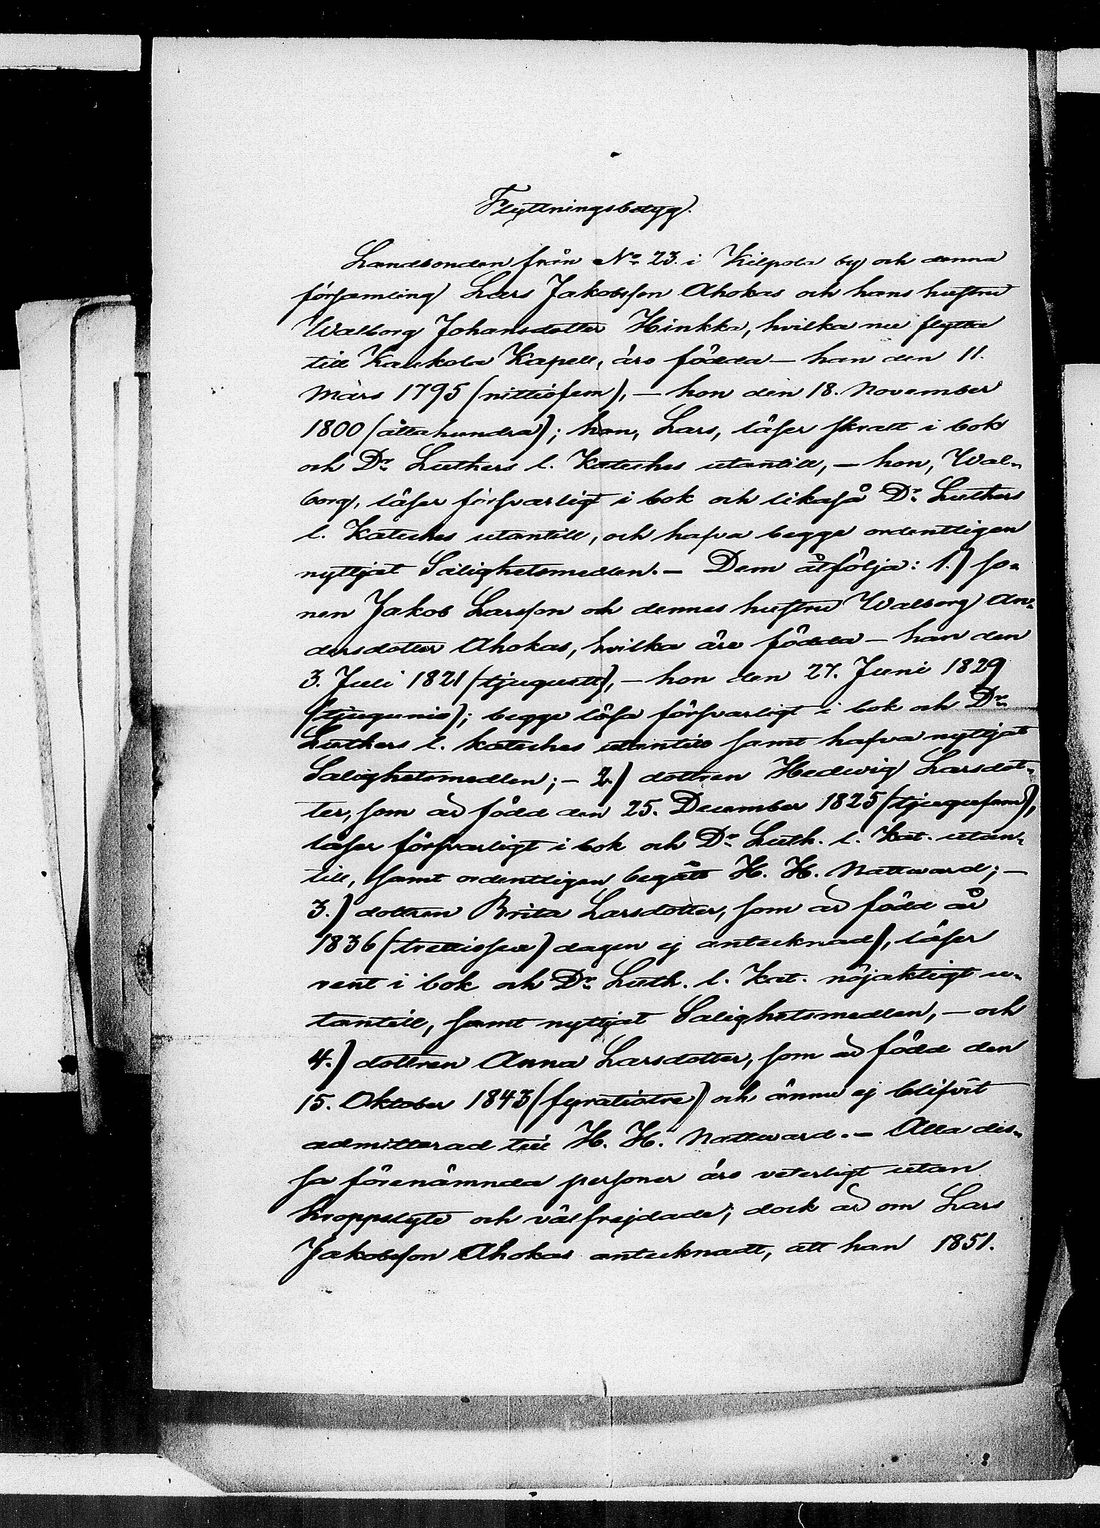 Flyttningsbetyg.
Landbonden från No 23. i Kilpola by och denna
församling Lars Jakobsson Ahokas och hans hustru
Walborg Johansdotter Hinkka, hvilka nu flytta
till Kaukola Kapell, äro födda – han den 11.
Mars 1795 (nittiofem), – hon den 18. November
1800 (åttahundra); han, Lars, läser skrett i bok
och Dr Luthers l. Kateches utantill, – hon, Wal-
borg, läser försvarligt i bok och likaså Dr Luthers
l. Kateches utantill, och hafva begge ordentligen
nyttjat Salighetsmedlen. – Dem åtfölja: 1.) so-
nen Jakob Larsson och dennes hustru Walborg An-
dersdotter Ahokas, hvilka äro födda – han den
3. Juli 1821 (tjuguett), – hon den 27. Juni 1829
(tjugunio); begge läsa försvarligt i bok och Dr
Luthers l. kateches utantill samt hafva nyttjat
Salighetsmedlen; – 2.) dottren Hedwig Larsdot-
ter, som är född den 25. December 1825 (tjugufem),
läser försvarligt i bok och Dr Luth. l. Kat. utan-
till, samt ordentligen begått H. H. Nattward; –
3.) dottren Brita Larsdotter, som är född år
1836 (trettiosex) dagen ej antecknad), läser
rent i bok och Dr Luth. l. Kat. nöjaktigt u-
tantill, samt nyttjat Salighetsmedlen, – och
4.) dottren Anna Larsdotter, som är född den
15. Oktober 1843 (fyratiotre) och ännu ej blifvit
admitterad till H. H. Nattward. – Alla des-
sa förenämnda personer äro veterligt utan
kroppslyte och välfrejdade; dock är om Lars
Jakobsson Ahokas antecknadt, att han 1851.